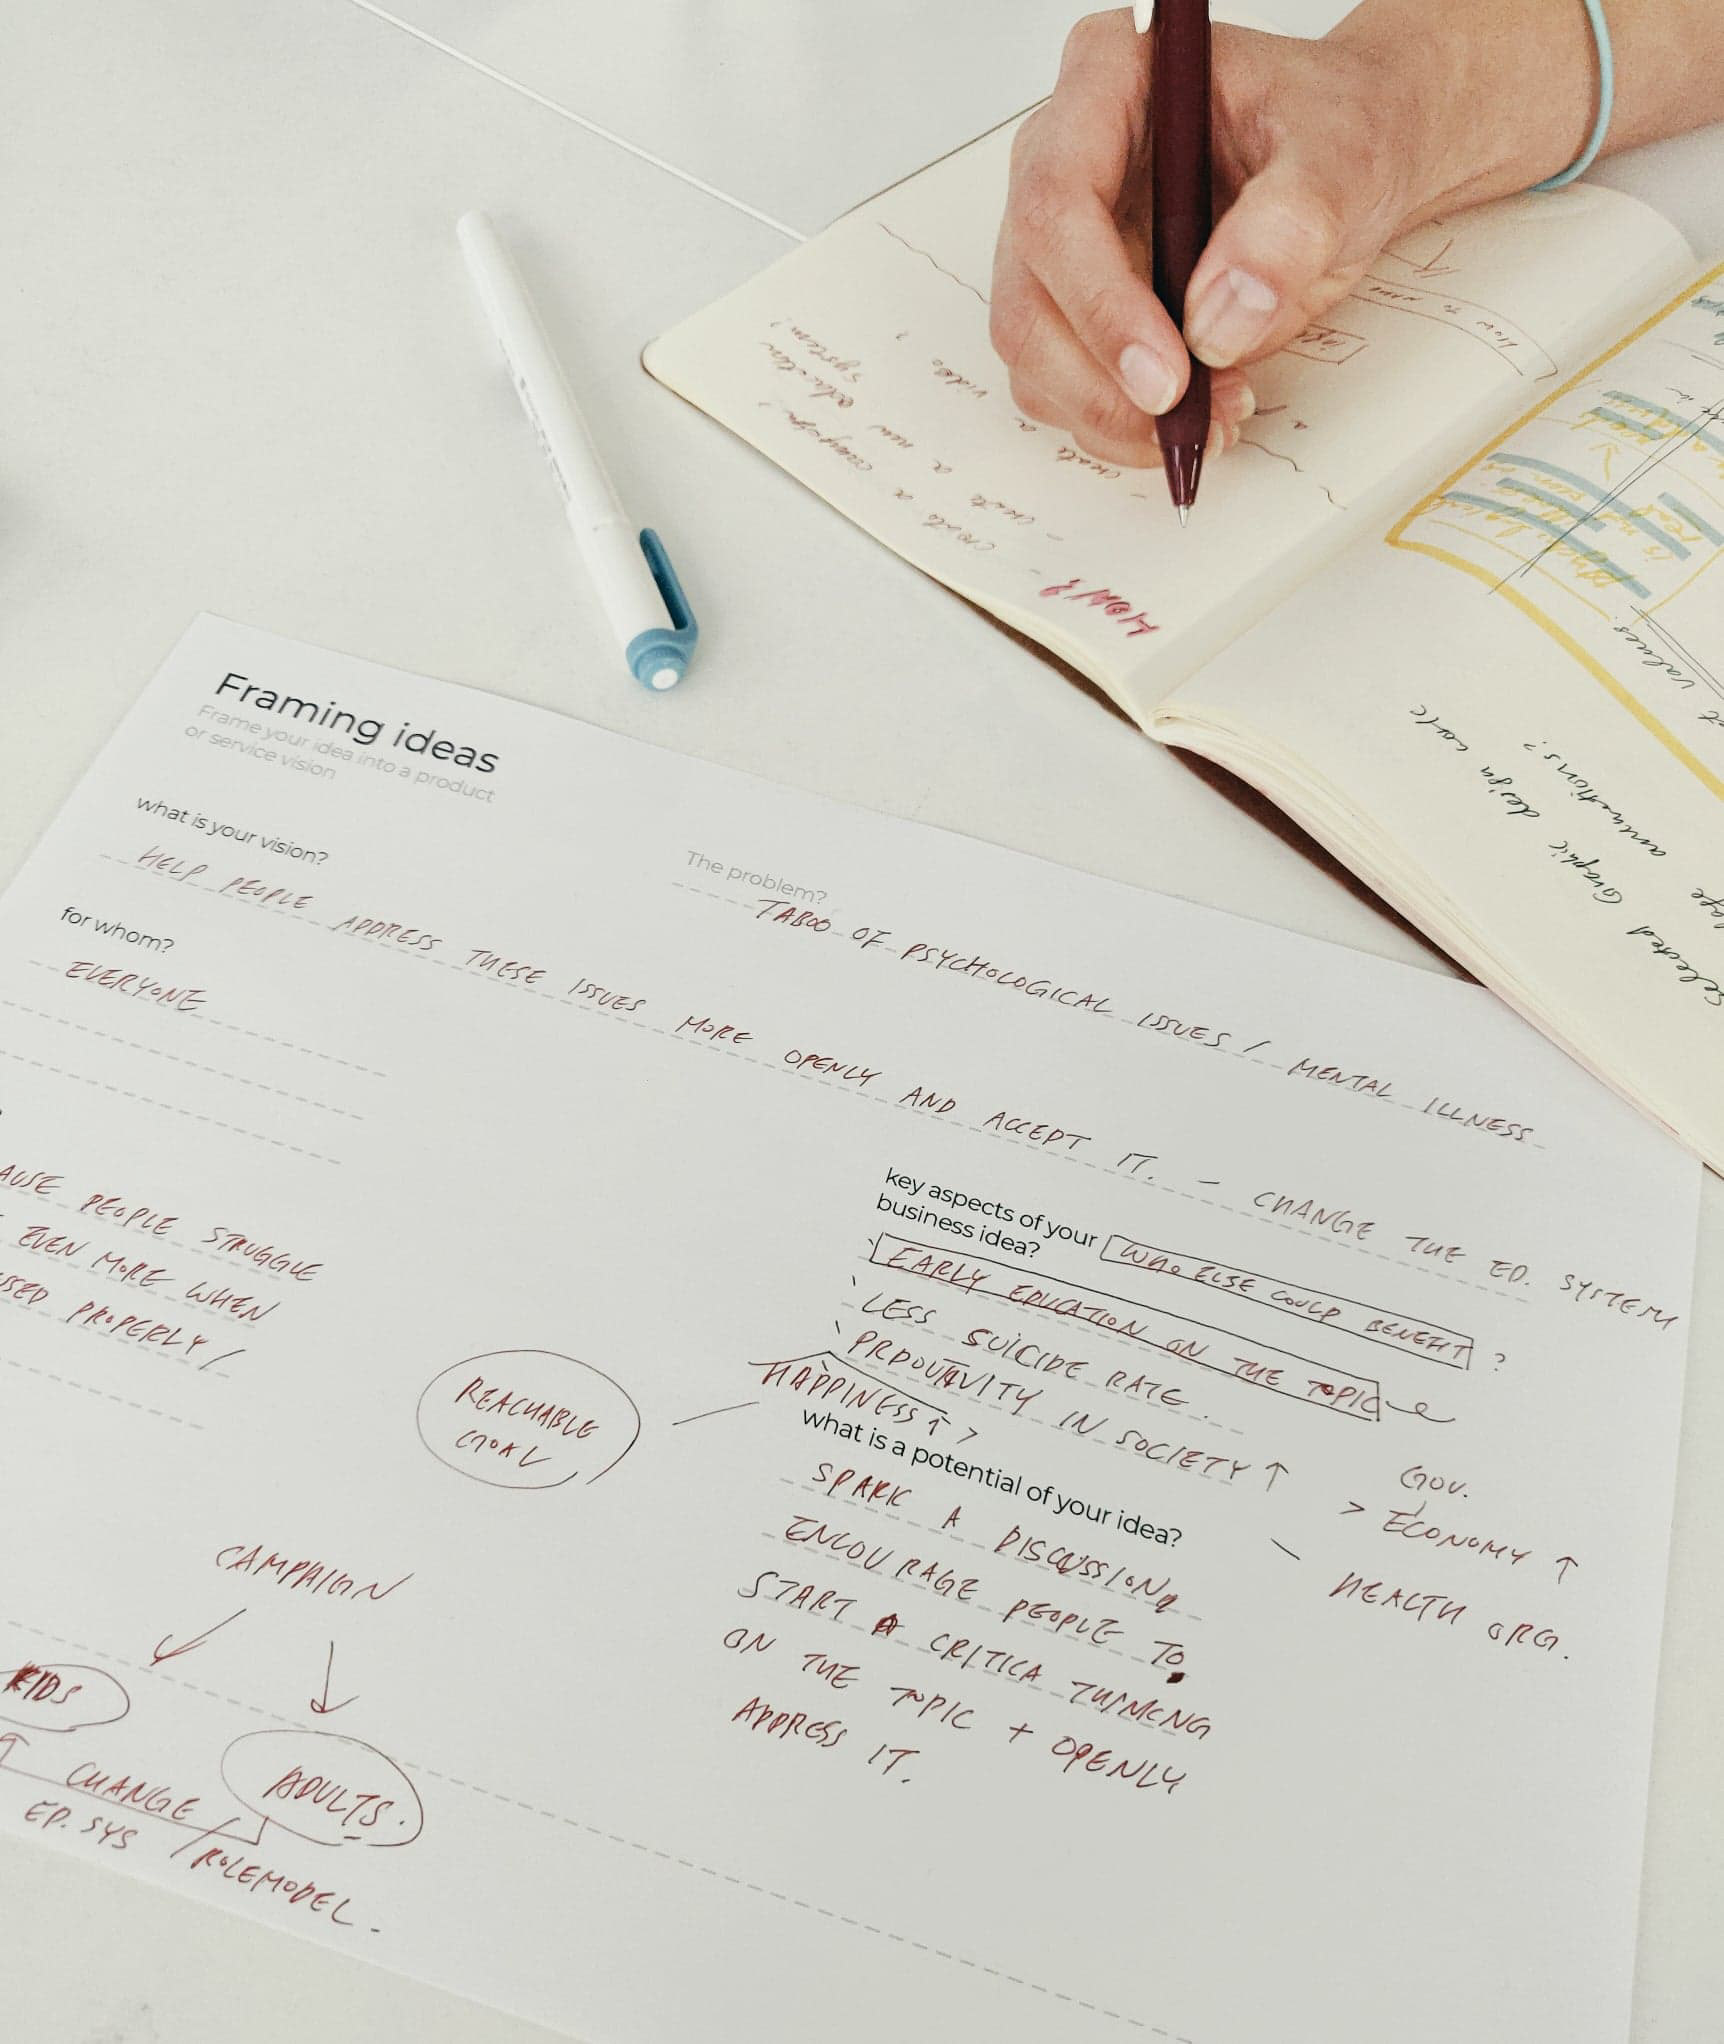 Framing ideas
Frame your idea into a product
or service vision
what is your vision?
HELP PEOPLE ADDRESS THESE ISSUES MORE OPENLY AND ACCEPT IT. – CHANGE THE ED. SYSTEM
The problem?
TABOO OF PSYCHOLOGICAL ISSUES / MENTAL ILLNESS
for whom?
EVERYONE
PEOPLE STRUGGLE
EVEN MORE WHEN
PROPERLY /
key aspects of your
business idea?
WHO ELSE COULD BENEFIT ?
EARLY EDUCATION ON THE TOPIC
LESS SUICIDE RATE.
IN SOCIETY ↑
HAPPINESS ↑ >
REACHABLE
GOAL
what is a potential of your idea?
SPARK A DISCUSSION
ENCOURAGE PEOPLE TO
START A CRITICA THINKING
ON THE TOPIC + OPENLY
ADDRESS IT.
GOV.
> ECONOMY ↑
HEALTH ORG.
CAMPAIGN
KIDS
ADULTS.
CHANGE
ED. SYS / ROLEMODEL.
HOW?
- create a campaign?
- create a new
education
system?
- create a video ?
HOW TO MAKE
values
Selected Graphic design work
animations?